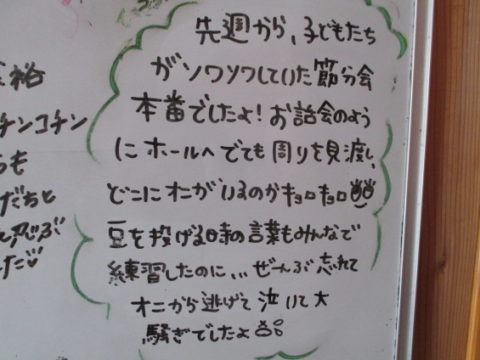 先週から、子どもたち
がソワソワしていた節分会
本番でしたよ！お話会のよう
にホールへでても周りを見渡し、
どこにオニがいるのかキョロキョロ
豆を投げる時の言葉もみんなで
練習したのに、、、ぜーんぶ忘れて
オニから逃げて泣いて大
騒ぎでしたよ
裕
チンコチン
も
だちと
ぶ
た♡